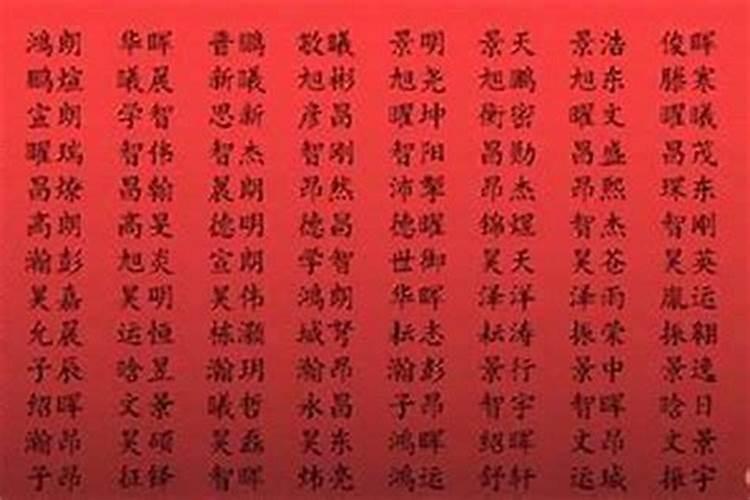 鸿朗 华晖 晋鹏 敬曦 景明 景天 景浩 俊晖
鹏煊 曦晨 新曦 旭彬 旭尧 旭鹏 旭东 滕寒
宣朗 学智 思新 彦昌 曜坤 衡密 曜文 曜曦
曜瑞 智伟 智杰 智刚 智阳 昌勋 昌盛 昌茂
昌燎 昌翰 晨朗 昂然 沛 昂杰 昂熙 琛东
高朗 高旻 德明 德昌 德曜 锦煜 智杰 智刚
瀚彭 旭炎 宣朗 学智 世御 昊天 昊苍 昊英
昊嘉 昊明 昊伟 鸿朗 华晖 泽洋 泽雨 胤运
允晨 运恒 栋灏 城弩 耘志 耘涛 振荣 振翱
子辰 晗昱 瀚玥 瀚昂 瀚彭 景行 景中 景逸
绍晖 文景 曦哲 永昌 子昂 智宇 智晖 晗日
瀚昂 昊硕 昊磊 昊东 鸿晖 绍晖 文昂 文景
子昂 征铎 智晖 炜亮 鸿运 舒轩 运城 振宇